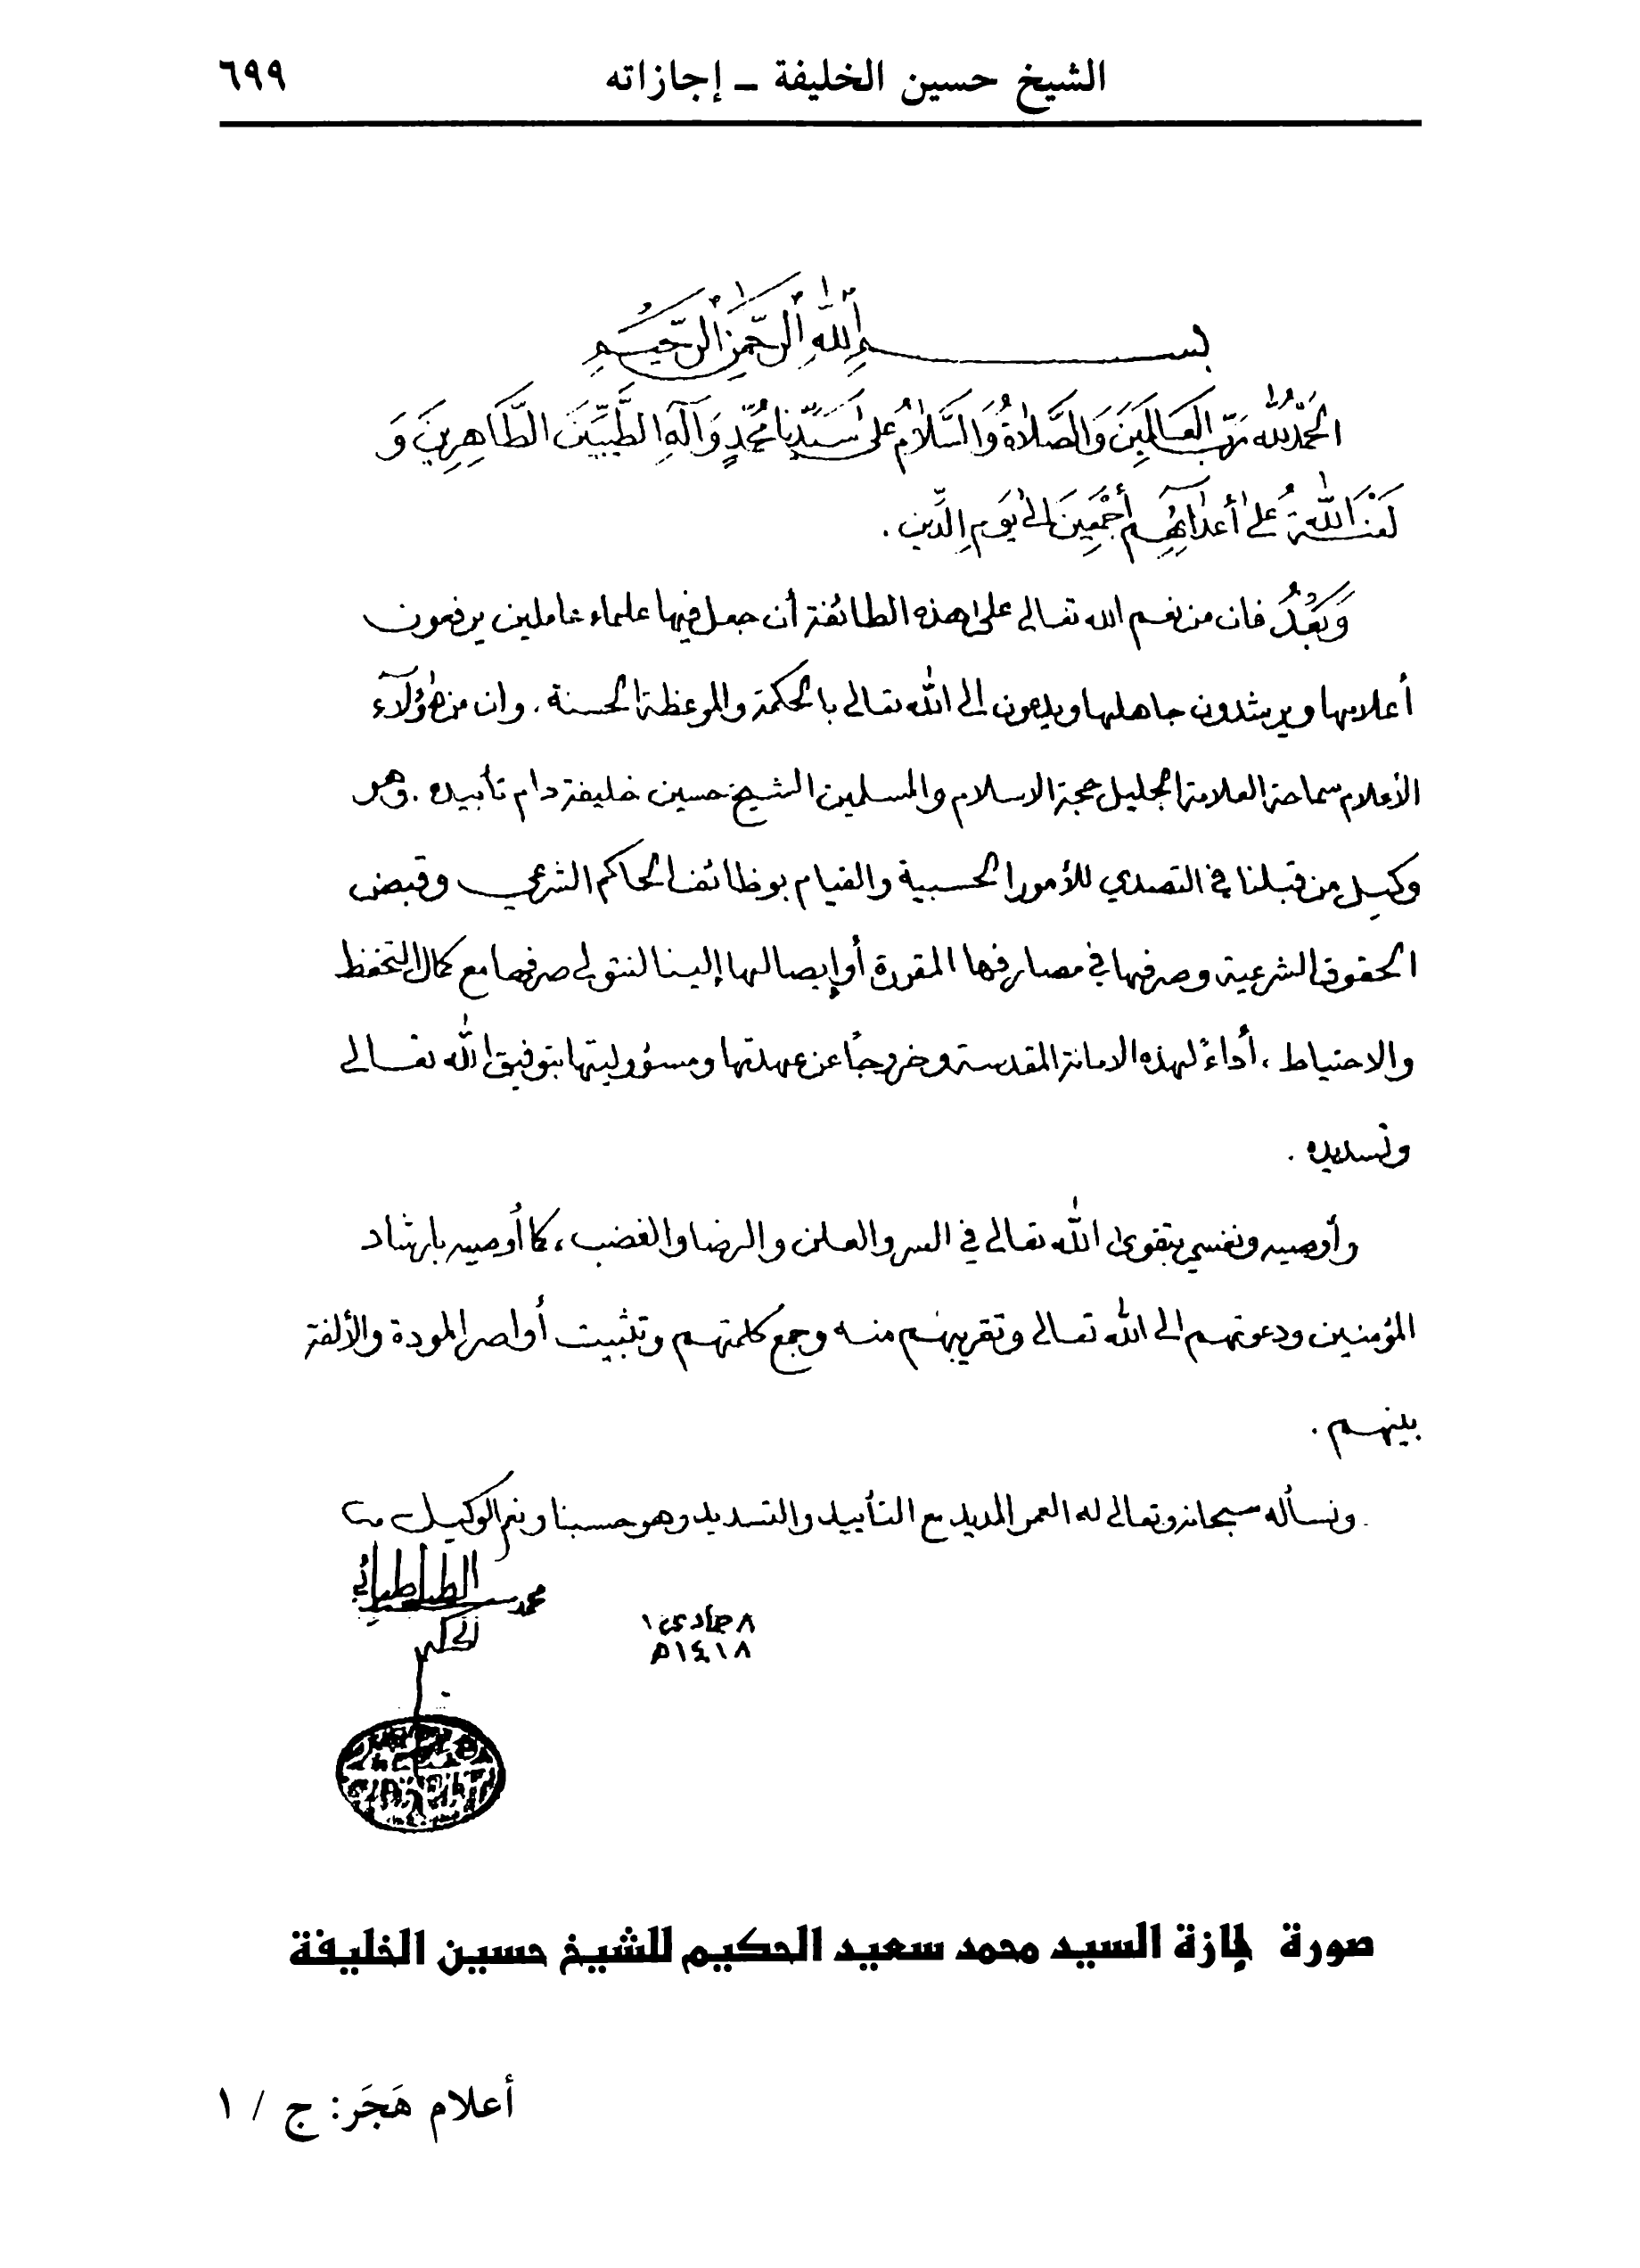 الشيخ حسين الخليفة ـ إجازاته ٦٩٩
بسم الله الرحمن الرحيم
الحمد لله رب العالمين والصلاة والسلام على سيدنا محمد وآله الطيبين الطاهرين و
لعنة الله على أعدائهم أجمعين إلى يوم الدين .
وبعد فان من نعم الله تعالى على هذه الطائفة أن جعل فيها علماء عاملين يرفعون
أعلامها ويرشدون جاهلها ويدعون الى الله تعالى بالحكمة والموعظة الحسنة . وان من هؤلاء
الأعلام سماحة العلامة الجليل حجة الاسلام والمسلمين الشيخ حسين خليفة دام تأييده . وهو
وكيل من قبلنا في التصدي للأمور الحسبية والقيام بوظائف الحاكم الشرعي وقبض
الحقوق الشرعية وصرفها في مصارفها المقررة أو إيصالها إلينا لنتولى صرفها مع كمال التحفظ
والاحتياط ، أداءً لهذه الامانة المقدسة وخروجاً عن عهدتها ومسؤوليتها بتوفيق الله تعالى
وتسديده .
وأوصيه ونفسي بتقوى الله تعالى في السر والعلن والرضا والغضب ، كما أوصيه بارشاد
المؤمنين ودعوتهم الى الله تعالى وتقريبهم منه وجمع كلمتهم وتثبيت أواصر المودة والألفة
بينهم .
ونسأله سبحانه وتعالى له العمر المديد مع التأييد والتسديد وهو حسبنا ونعم الوكيل
محمد سعيد الطباطبائي
الحكيم
٨ جمادى ١
١٤١٨ه
صورة إجازة السيد محمد سعيد الحكيم للشيخ حسين الخليفة
أعلام هَجَر: ج / ١